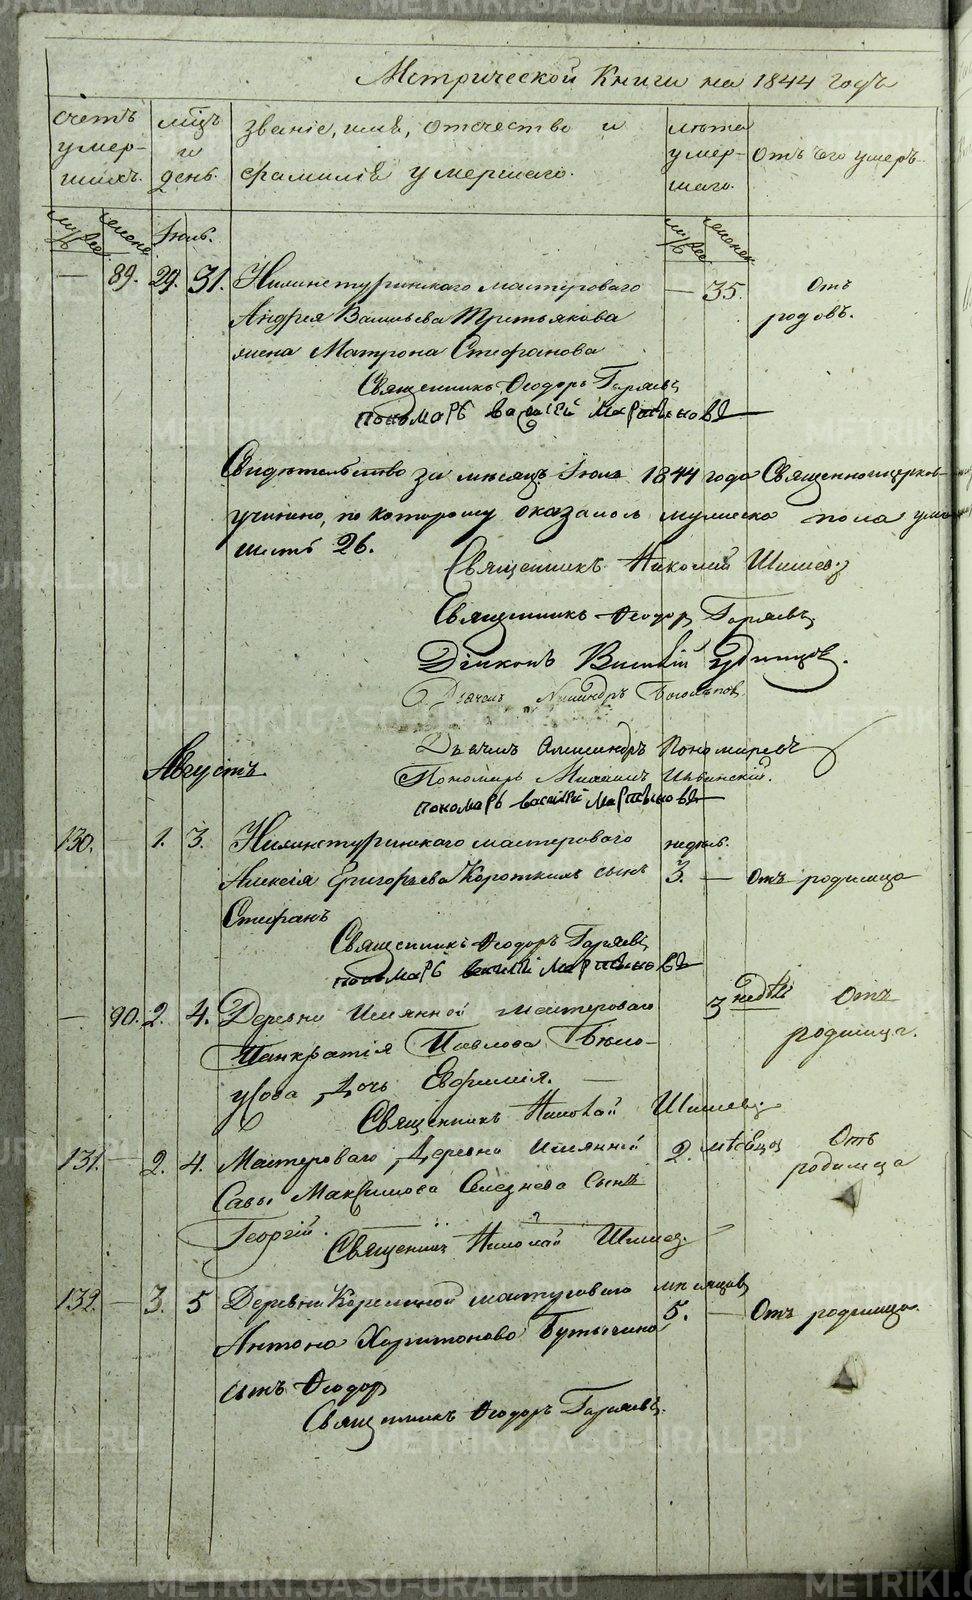 METRIKI.GASO-URAL.RU
Метрической Книги на 1844 годъ
счетъ умер-шихъ.
мцъ и день.
званіе, имя, отчество и фамилія умершаго.
лѣта умер-шаго.
Отъ чего умеръ
муж. женс. Іюль. муж. женск.
— 89. 29. 31. Нижнетуринскаго мастероваго — 35. Отъ
Андрея Васильева Третьякова родовъ.
жена Матрона Стефанова
Священникъ Ѳеодоръ Гаряевъ
пономарь василій мартыновъ
Свидѣтельство за мѣсяцъ Іюль 1844 года Священноцерков-
учинено, по которому оказалось мужеска пола
шесть 26.
Священникъ Николай Шишевъ
Священникъ Ѳеодоръ Гаряевъ
Діаконъ
Дьячекъ
Дьячекъ Александръ Пономаревъ
Пономарь
пономарь василій мартыновъ
Августъ
130. — 1. 3. Нижнетуринскаго мастероваго недѣль.
Алексія Григорьева Короткихъ сынъ 3. — Отъ родимца
Стефанъ
Священникъ Ѳеодоръ Гаряевъ
пономарь василій мартыновъ
— 90. 2. 4. Деревни Именной мастероваго 3 недѣли Отъ
Панкратія Павлова Бѣло- родимца.
усова дочь Евфимія.
Священникъ Николай Шишевъ
131. — 2. 4. Мастероваго Деревни Именной 2. мѣсяца Отъ
Савы Максимова Селезнева сынъ родимца
Георгій.
Священникъ Николай Шишевъ
132. — 3. 5 Деревни мастероваго мѣсяцовъ
Антона Харитонова сынъ Ѳеодоръ 5. — Отъ родимца.
Священникъ Ѳеодоръ Гаряевъ.